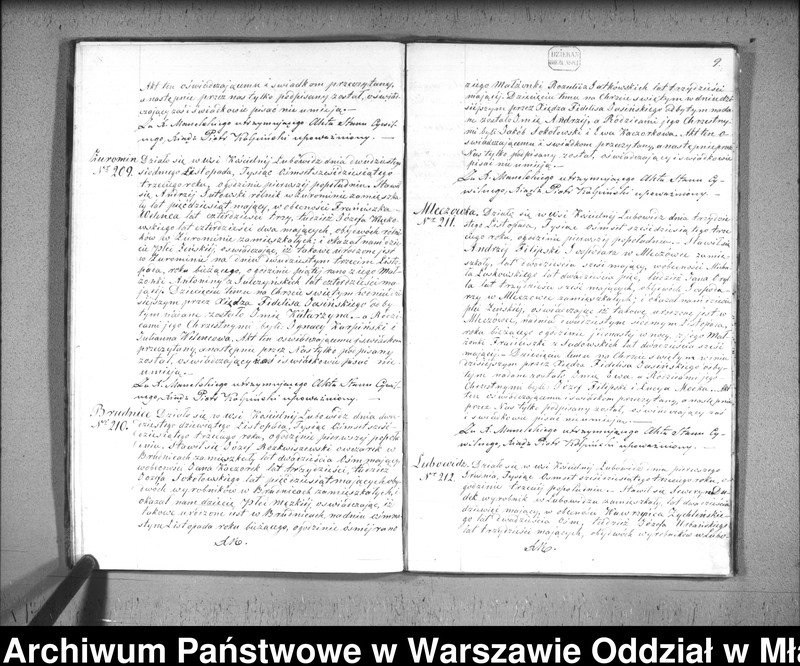 Akt ten oświadczającemu i świadkom przeczytany,
a następnie przez nas tylko podpisany został, oświad-
czający zaś i świadkowie pisać nie umieją.—
Za X. utrzymującego Akta Stanu Cywil-
nego, Xiądz Piotr upoważniony.—
Żuromin
Nr 209.
Działo się we wsi Kościelnej Lubowidz dnia dwudziestego
siódmego Listopada, Tysiąc Ośmset sześćdziesiątego
trzeciego roku, o godzinie pierwszej popołudniu. Stawił
się Andrzej rolnik w Żurominie zamieszka-
ły lat pięćdziesiąt mający, w obecności Franciszka
lat czterdzieści trzy, tudzież Józefa
lat czterdzieści dwa mających, obydwóch rolni-
ków w Żurominie zamieszkałych; i okazał nam dzie-
cię płci żeńskiej, oświadczając, iż takowe urodzone jest
w Żurominie na dniu dwudziestym trzecim Listo-
pada, roku bieżącego, o godzinie piątej rano z jego Mał-
żonki Antoniny z lat czterdzieści ma-
jącej. Dziecięciu temu na Chrzcie świętym w dniu dzi-
siejszym przez Xiędza Fidelisa Jasińskiego odby-
tym nadane zostało Imię Katarzyna.— a Rodzi-
cami jego Chrzestnymi byli: Ignacy Karpiński i
Julianna. Akt ten oświadczającemu i świadkom
przeczytany, a następnie przez Nas tylko podpisany
został, oświadczający zaś i świadkowie pisać nie
umieją.—
Za X. utrzymującego Akta Stanu Cywil-
nego, Xiądz Piotr upoważniony.—
Brudnice
Nr 210.
Działo się we wsi Kościelnej Lubowidz dnia dwu-
dziestego dziewiątego Listopada, Tysiąc Ośmset sześć-
dziesiątego trzeciego roku, o godzinie pierwszej popołu-
dniu. Stawił się Józef owczarz w
Brudnicach zamieszkały lat dwadzieścia ośm mający,
w obecności Jana Kaczorek lat trzydzieści, tudzież
Józefa Sokołowskiego lat pięćdziesiąt mających, oby-
dwóch wyrobników w Brudnicach zamieszkałych; i
okazał nam dziecię płci męzkiej, oświadczając, iż
takowe urodzone jest w Brudnicach na dniu
Listopada roku bieżącego, o godzinie ósmej rano
9.
z jego Małżonki Rozalii z Jutkowskich lat trzydzieści
mającej. Dziecięciu temu na Chrzcie świętym w dniu dzi-
siejszym przez Xiędza Fidelisa Jasińskiego odbytym nada-
ne zostało Imię Andrzej, a Rodzicami jego Chrzestny-
mi byli: Jakób Sokołowski i Ewa Kaczorkowa. Akt ten o-
świadczającemu i świadkom przeczytany, a następnie przez
Nas tylko podpisany został, oświadczający i świadkowie
pisać nie umieją.—
Za X. utrzymującego Akta Stanu Cy-
wilnego, Xiądz Piotr upoważniony.—
Mleczówka.
Nr 211.
Działo się we wsi Kościelnej Lubowidz dnia trzydzie-
stego Listopada, Tysiąc Ośmset sześćdziesiątego trze-
ciego roku, o godzinie pierwszej popołudniu.— Stawił się
Andrzej Filipski, Gospodarz w zamie-
szkały, lat dwadzieścia sześć mający, w obecności Micha-
ła lat dwadzieścia pięć, tudzież Jana
lat trzydzieści sześć mających, obydwóch Gospoda-
rzy w zamieszkałych; i okazał nam dziecię
płci żeńskiej, oświadczając iż takowe urodzone jest w
na dniu dwudziestym siódmym Listopada,
roku bieżącego o godzinie pierwszej w nocy, z jego Mał-
żonki Franciszki z lat dwadzieścia sześć
mającej.— Dziecięciu temu na Chrzcie świętym w dniu
dzisiejszym przez Xiędza Fidelisa Jasińskiego odby-
tym nadane zostało Imię Ewa.— a Rodzicami jego
Chrzestnymi byli: Józef Filipski i Łucya. Akt
ten oświadczającemu i świadkom przeczytany, a następnie
przez Nas tylko podpisany został, oświadczający zaś
i świadkowie pisać nie umieją.—
Za X. utrzymującego Akta Stanu Cy-
wilnego, Xiądz Piotr upoważniony.—
Lubowidz
Nr 212.
Działo się we wsi Kościelnej Lubowidz dnia pierwszego
Grudnia, Tysiąc Ośmset sześćdziesiątego trzeciego roku, o
godzinie trzeciej popołudniu.— Stawił się Seweryn
wyrobnik w Lubowidzu zamieszkały, lat dwadzieścia
dziewięć mający, w obecności Wawrzyńca Żychlińskie-
go lat dwadzieścia ośm, tudzież Józefa Urbańskiego
lat trzydzieści mających, obydwóch wyrobników w Lubo-
Archiwum Państwowe w Warszawie Oddział w Mła